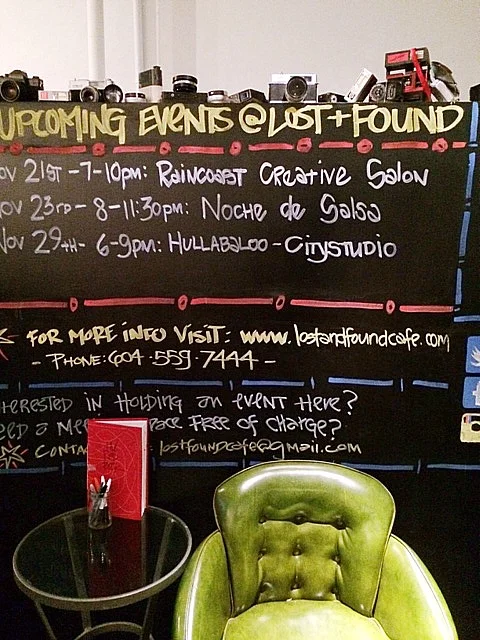 UPCOMING EVENTS @ LOST + FOUND
ov 21st - 7-10pm: Raincoast Creative Salon
ov 23rd - 8-11:30pm: Noche de Salsa
Nov 29th - 6-9pm: Hullabaloo - CityStudio
For more info visit: www.lostandfoundcafe.com
- Phone: 604.559.7444 -
terested in Holding an event Here?
eed a Mee pace Free of Charge?
Conta : lostfoundcafe@gmail.com